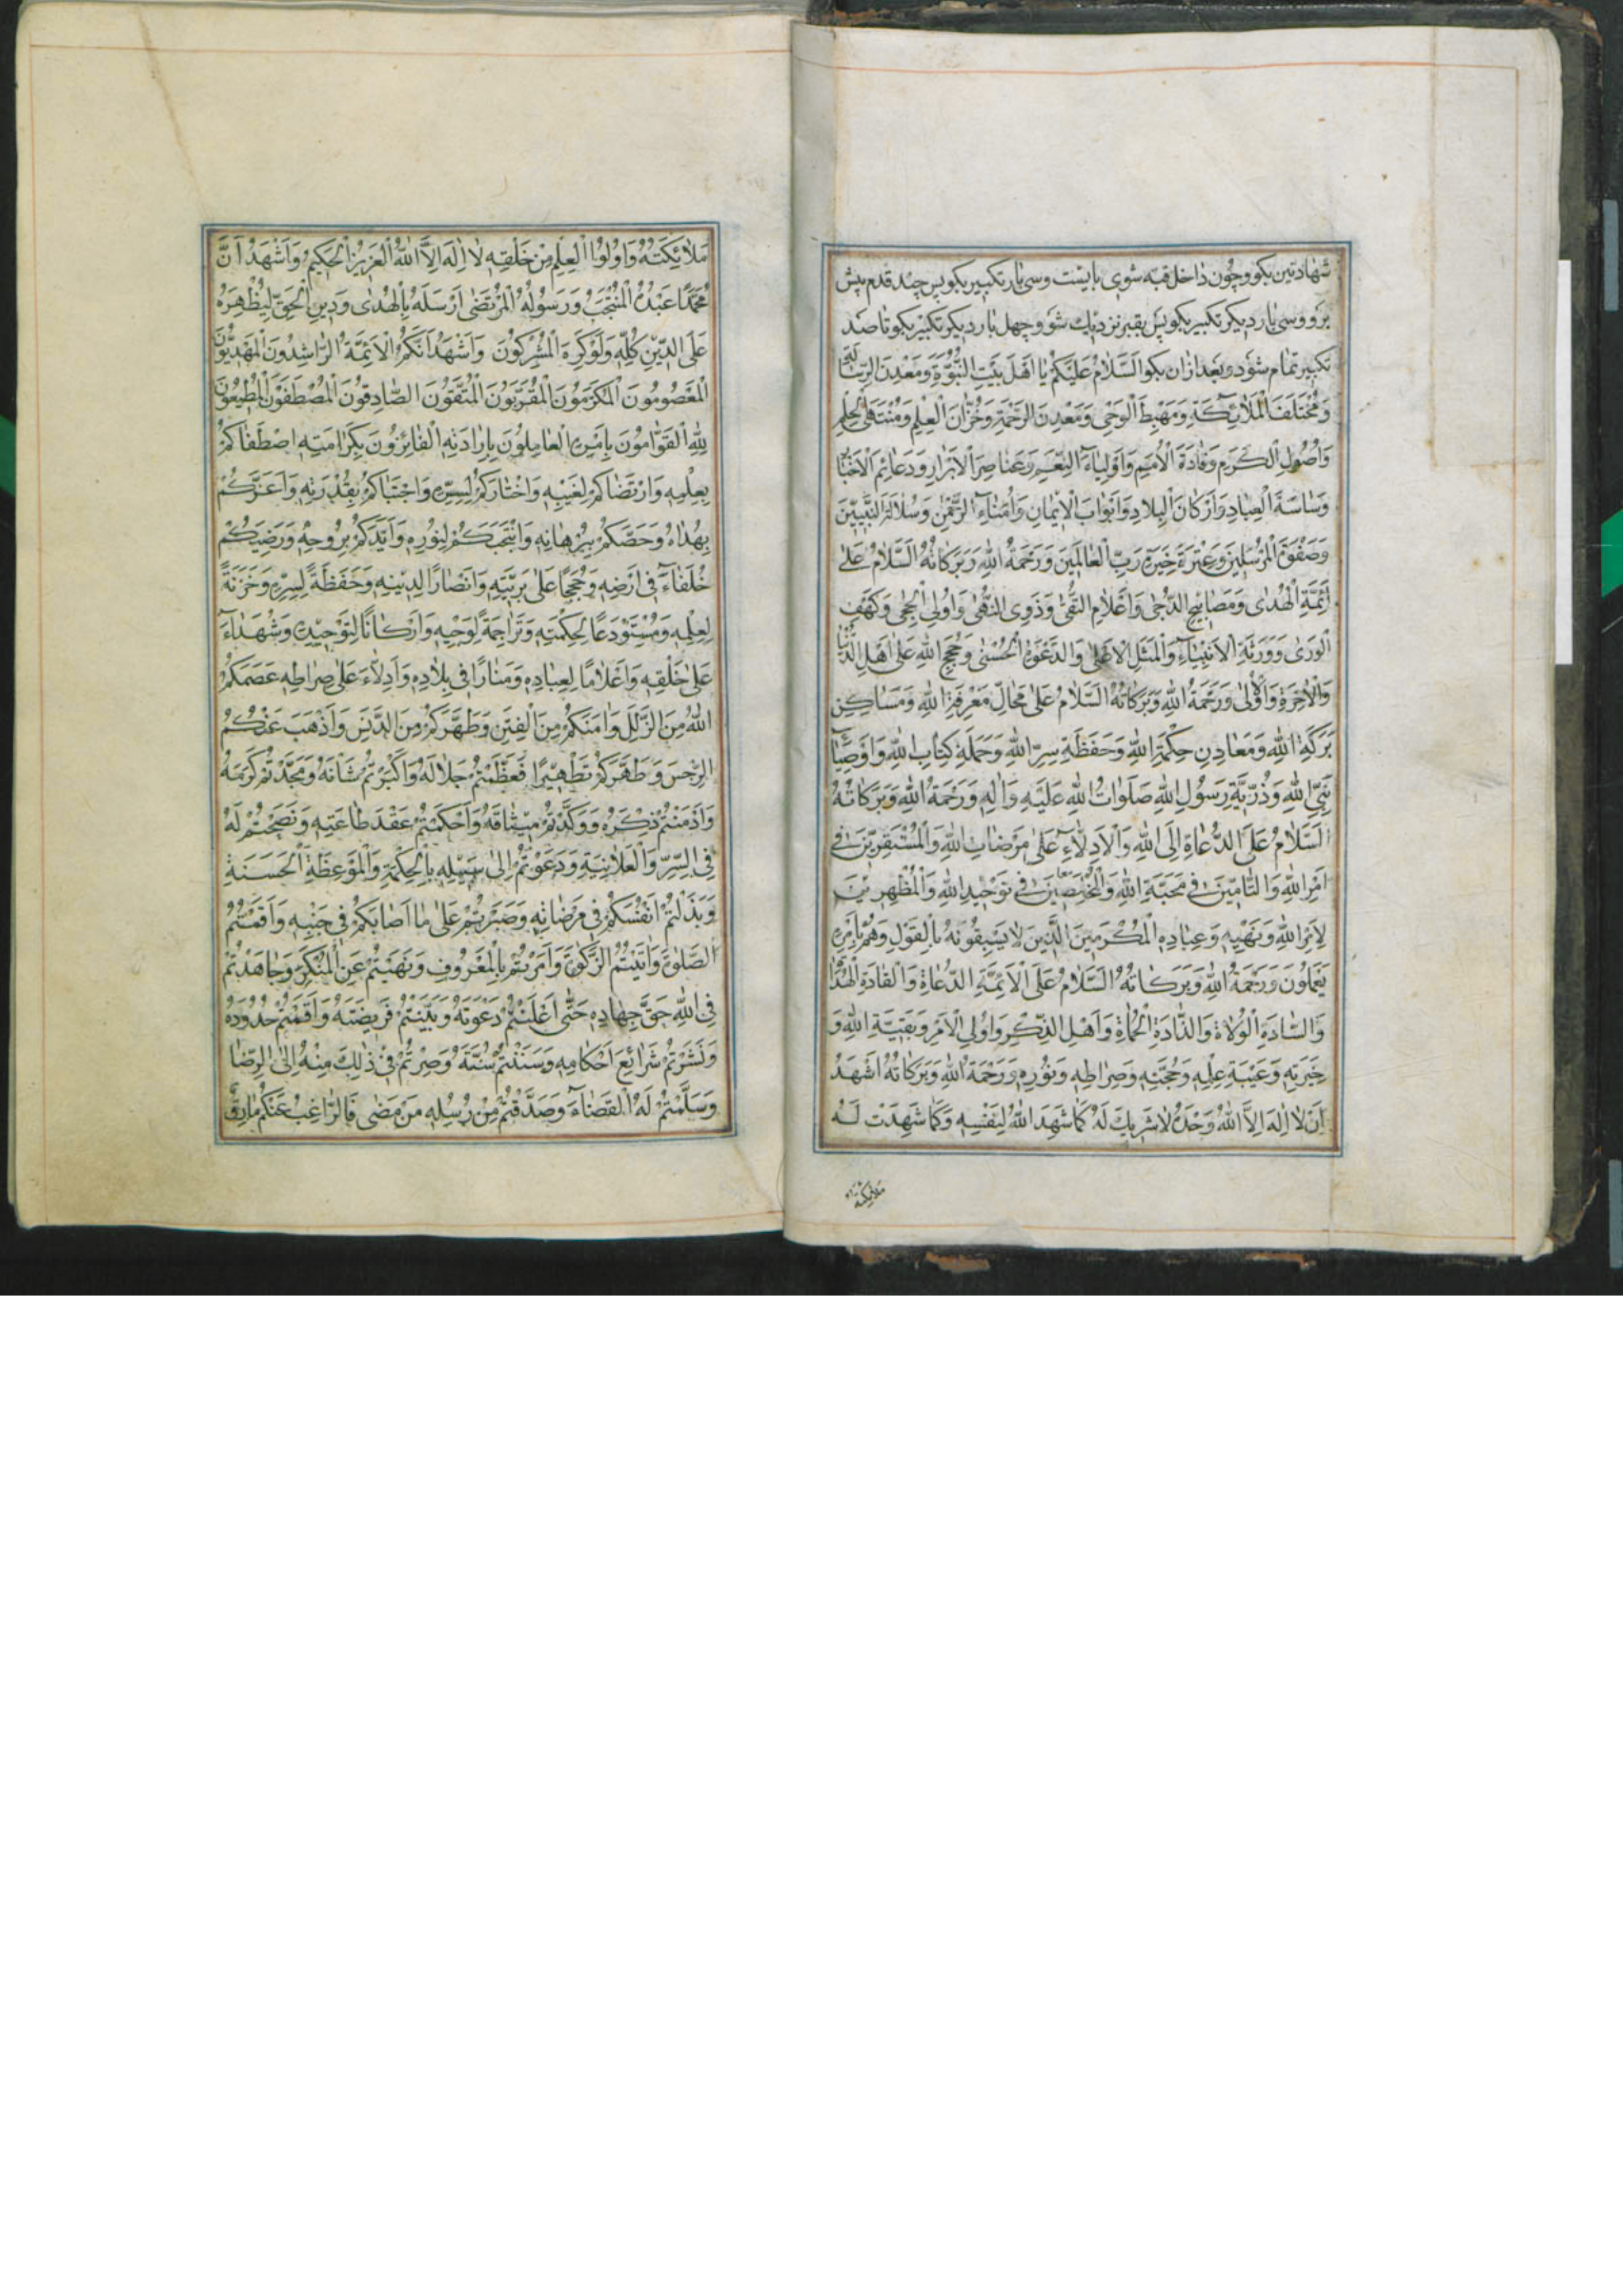 شهادتین بکو و چون داخل قبه شوی بایست و سی بار تکبیر بکو پس چند قدم پیش
برو و سی بار دیکر تکبیر بکو پس بقبر نزدیک شو و چهل بار دیکر تکبیر بکو تا صد
تکبیر تمام شود و بعد ازان بکو اَلسَّلامُ عَلَيْكُمْ يا اَهْلَ بَيْتِ النُّبُوَّةِ وَمَعْدِنَ الرِّسالَةِ
وَمُخْتَلَفَ الْمَلائِكَةِ وَمَهْبِطَ الْوَحْيِ وَمَعْدِنَ الرَّحْمَةِ وَخُزّانَ الْعِلْمِ وَمُنْتَهَى الْحِلْمِ
وَاُصُولِ الْكَرَمِ وَقادَةَ الْاُمَمِ وَاَوْلِياءَ النِّعَمِ وَعَناصِرَ الْاَبْرارِ وَدَعائِمَ الْاَخْيارِ
وَساسَةَ الْعِبادِ وَاَرْكانَ الْبِلادِ وَاَبْوابَ الْايمانِ وَاُمَناءَ الرَّحْمٰنِ وَسُلالَةَ النَّبِيّينَ
وَصَفْوَةَ الْمُرْسَلينَ وَعِتْرَةَ خِيَرَةِ رَبِّ الْعالَمينَ وَرَحْمَةُ اللهِ وَبَرَكاتُهُ اَلسَّلامُ عَلىٰ
اَئِمَّةِ الْهُدىٰ وَمَصابيحِ الدُّجىٰ وَاَعْلامِ التُّقىٰ وَذَوِي النُّهىٰ وَاُولِي الْحِجىٰ وَكَهْفِ
الْوَرىٰ وَوَرَثَةِ الْاَنْبِياءِ وَالْمَثَلِ الْاَعْلىٰ وَالدَّعْوَةِ الْحُسْنىٰ وَحُجَجِ اللهِ عَلىٰ اَهْلِ الدُّنْيا
وَالْاٰخِرَةِ وَالْاُولىٰ وَرَحْمَةُ اللهِ وَبَرَكاتُهُ اَلسَّلامُ عَلىٰ مَحالِّ مَعْرِفَةِ اللهِ وَمَساكِنِ
بَرَكَةِ اللهِ وَمَعادِنِ حِكْمَةِ اللهِ وَحَفَظَةِ سِرِّ اللهِ وَحَمَلَةِ كِتابِ اللهِ وَاَوْصِياءِ
نَبِيِّ اللهِ وَذُرِّيَّةِ رَسُولِ اللهِ صَلَواتُ اللهِ عَلَيْهِ وَاٰلِهِ وَرَحْمَةُ اللهِ وَبَرَكاتُهُ
اَلسَّلامُ عَلَى الدُّعاةِ اِلَى اللهِ وَالْاَدِلّاءِ عَلىٰ مَرْضاتِ اللهِ وَالْمُسْتَقِرّينَ في
اَمْرِ اللهِ وَالتّامّينَ في مَحَبَّةِ اللهِ وَالْمُخْلِصينَ في تَوْحيدِ اللهِ وَالْمُظْهِرينَ
لِاَمْرِ اللهِ وَنَهْيِهِ وَعِبادِهِ الْمُكْرَمينَ الَّذينَ لا يَسْبِقُونَهُ بِالْقَوْلِ وَهُمْ بِاَمْرِهِ
يَعْمَلُونَ وَرَحْمَةُ اللهِ وَبَرَكاتُهُ اَلسَّلامُ عَلَى الْاَئِمَّةِ الدُّعاةِ وَالْقادَةِ الْهُداةِ
وَالسّادَةِ الْوُلاةِ وَالذّادَةِ الْحُماةِ وَاَهْلِ الذِّكْرِ وَاُولِي الْاَمْرِ وَبَقِيَّةِ اللهِ وَ
خِيَرَتِهِ وَعَيْبَةِ عِلْمِهِ وَحُجَّتِهِ وَصِراطِهِ وَنُورِهِ وَرَحْمَةُ اللهِ وَبَرَكاتُهُ اَشْهَدُ
اَنْ لا اِلٰهَ اِلَّا اللهُ وَحْدَهُ لا شَريكَ لَهُ كَما شَهِدَ اللهُ لِنَفْسِهِ وَكَما شَهِدَتْ لَهُ
ملائكته
مَلائِكَتُهُ وَاُولُوا الْعِلْمِ مِنْ خَلْقِهِ لا اِلٰهَ اِلَّا اللهُ الْعَزيزُ الْحَكيمُ وَاَشْهَدُ اَنَّ
مُحَمَّدًا عَبْدُهُ الْمُنْتَجَبُ وَرَسُولُهُ الْمُرْتَضىٰ اَرْسَلَهُ بِالْهُدىٰ وَدينِ الْحَقِّ لِيُظْهِرَهُ
عَلَى الدّينِ كُلِّهِ وَلَوْ كَرِهَ الْمُشْرِكُونَ وَاَشْهَدُ اَنَّكُمُ الْاَئِمَّةُ الرّاشِدُونَ الْمَهْدِيُّونَ
الْمَعْصُومُونَ الْمُكَرَّمُونَ الْمُقَرَّبُونَ الْمُتَّقُونَ الصّادِقُونَ الْمُصْطَفَوْنَ الْمُطيعُونَ
لِلّٰهِ الْقَوّامُونَ بِاَمْرِهِ الْعامِلُونَ بِاِرادَتِهِ الْفائِزُونَ بِكَرامَتِهِ اِصْطَفاكُمْ
بِعِلْمِهِ وَارْتَضاكُمْ لِغَيْبِهِ وَاخْتارَكُمْ لِسِرِّهِ وَاجْتَباكُمْ بِقُدْرَتِهِ وَاَعَزَّكُمْ
بِهُداهُ وَخَصَّكُمْ بِبُرْهانِهِ وَانْتَجَبَكُمْ لِنُورِهِ وَاَيَّدَكُمْ بِرُوحِهِ وَرَضِيَكُمْ
خُلَفاءَ في اَرْضِهِ وَحُجَجًا عَلىٰ بَرِيَّتِهِ وَاَنْصارًا لِدينِهِ وَحَفَظَةً لِسِرِّهِ وَخَزَنَةً
لِعِلْمِهِ وَمُسْتَوْدَعًا لِحِكْمَتِهِ وَتَراجِمَةً لِوَحْيِهِ وَاَرْكانًا لِتَوْحيدِهِ وَشُهَداءَ
عَلىٰ خَلْقِهِ وَاَعْلامًا لِعِبادِهِ وَمَنارًا في بِلادِهِ وَاَدِلّاءَ عَلىٰ صِراطِهِ عَصَمَكُمُ
اللهُ مِنَ الزَّلَلِ وَاٰمَنَكُمْ مِنَ الْفِتَنِ وَطَهَّرَكُمْ مِنَ الدَّنَسِ وَاَذْهَبَ عَنْكُمُ
الرِّجْسَ وَطَهَّرَكُمْ تَطْهيرًا فَعَظَّمْتُمْ جَلالَهُ وَاَكْبَرْتُمْ شَاْنَهُ وَمَجَّدْتُمْ كَرَمَهُ
وَاَدْمَنْتُمْ ذِكْرَهُ وَوَكَّدْتُمْ ميثاقَهُ وَاَحْكَمْتُمْ عَقْدَ طاعَتِهِ وَنَصَحْتُمْ لَهُ
فِي السِّرِّ وَالْعَلانِيَةِ وَدَعَوْتُمْ اِلىٰ سَبيلِهِ بِالْحِكْمَةِ وَالْمَوْعِظَةِ الْحَسَنَةِ
وَبَذَلْتُمْ اَنْفُسَكُمْ في مَرْضاتِهِ وَصَبَرْتُمْ عَلىٰ ما اَصابَكُمْ في جَنْبِهِ وَاَقَمْتُمُ
الصَّلوٰةَ وَاٰتَيْتُمُ الزَّكوٰةَ وَاَمَرْتُمْ بِالْمَعْرُوفِ وَنَهَيْتُمْ عَنِ الْمُنْكَرِ وَجاهَدْتُمْ
فِي اللهِ حَقَّ جِهادِهِ حَتّىٰ اَعْلَنْتُمْ دَعْوَتَهُ وَبَيَّنْتُمْ فَريضَتَهُ وَاَقَمْتُمْ حُدُودَهُ
وَنَشَرْتُمْ شَرائِعَ اَحْكامِهِ وَسَنَنْتُمْ سُنَّتَهُ وَصِرْتُمْ في ذٰلِكَ مِنْهُ اِلَى الرِّضا
وَسَلَّمْتُمْ لَهُ الْقَضاءَ وَصَدَّقْتُمْ مِنْ رُسُلِهِ مَنْ مَضىٰ فَالرّاغِبُ عَنْكُمْ مارِقٌ